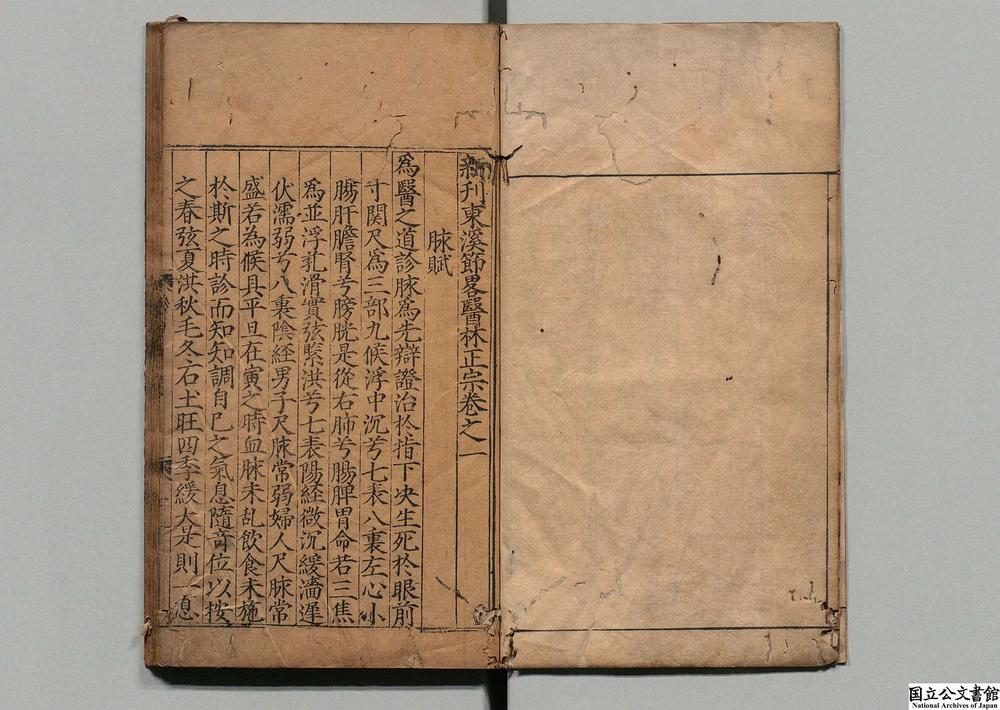 新刊東溪節畧醫林正宗卷之一
脉賦
爲醫之道診脉爲先辯證治扵指下决生死扵眼前
寸関尺爲三部九候浮中沉兮七表八裏左心小
膓肝膽腎兮膀胱是從右肺兮腸脾胃命若三焦
爲並浮芤滑實弦緊洪兮七表陽経微沉緩濇遲
伏濡弱兮八裏陰経男子尺脉常弱婦人尺脉常
盛若為候具平旦在寅之時血脉未乱飲食未施
扵斯之時診而知知調自已之氣息隨音位以按
之春弦夏洪秋毛冬石土旺四季緩大是則一息
国立公文書館
National Archives of Japan